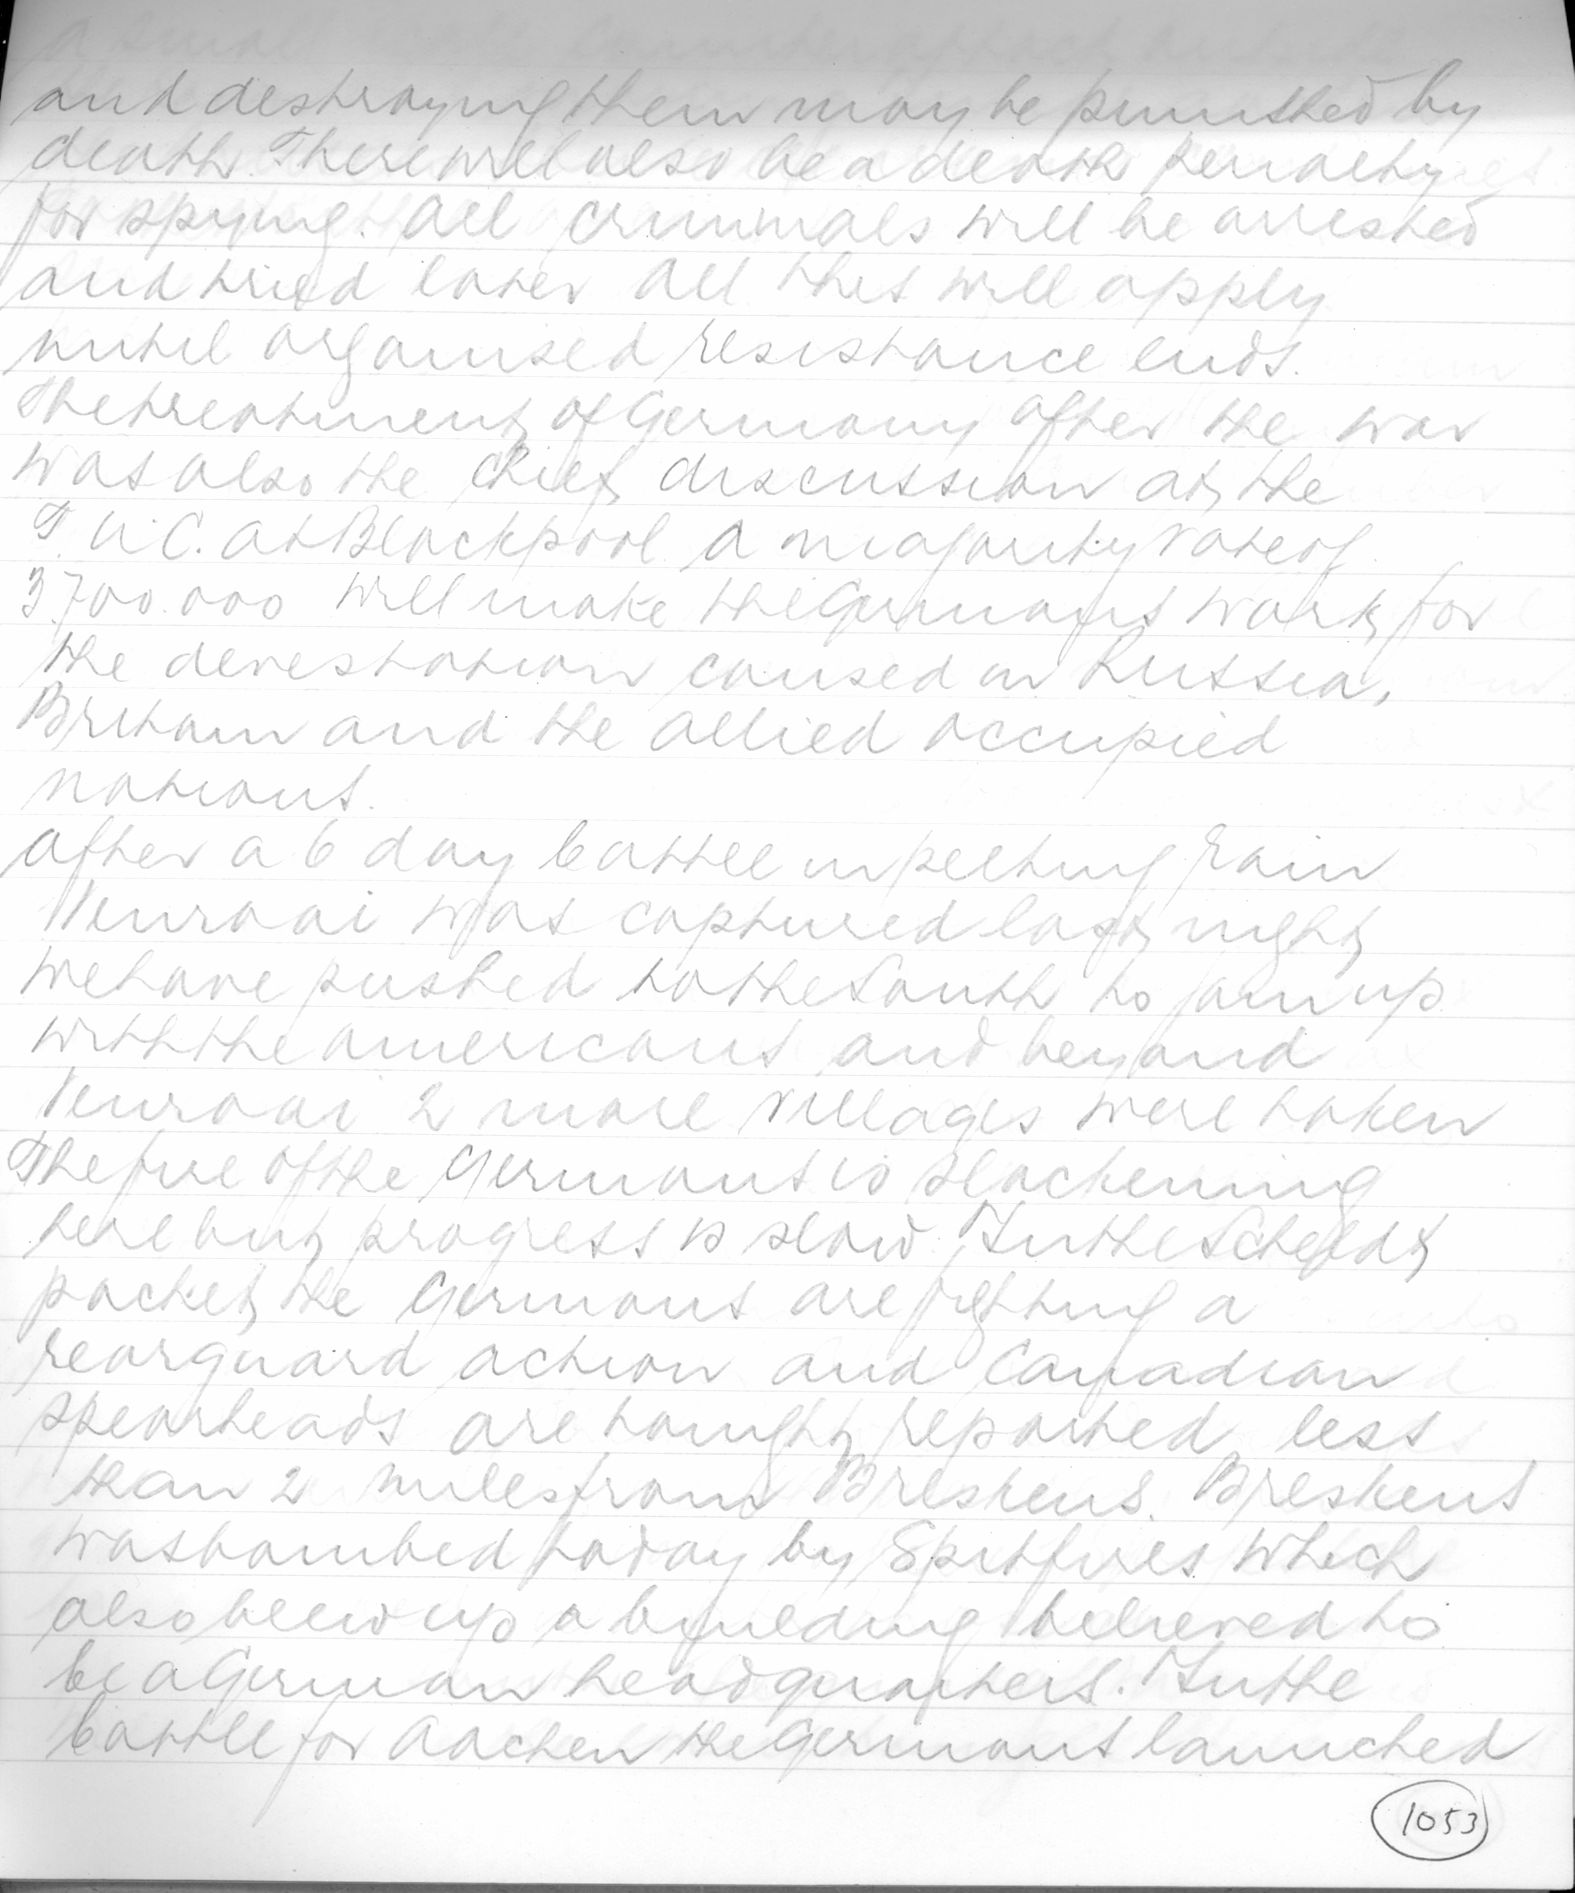 and destroying them may be punished by
death. There will also be a death penalty
for spying. All criminals will be arrested
and tried later All this will apply
until organised resistance ends.
The treatment of Germany after the war
was also the chief discussion at the
T.U.C. at Blackpool A majority vote of
3.700.000 will make the Germans work for
the devestation caused in Russia,
Britain and the allied occupied
nations.
After a 6 day battle in pelting rain
Venraai was captured last night
We have pushed to the South to join up
with the Americans and beyond
Venraai 2 more villages were taken
The fire of the Germans is slackening
here but progress is slow. In the Scheldt
pocket the Germans are fighting a
rearguard action and Canadian
spearheads are tonight reported less
than 2 miles from Breskens. Breskens
was bombed today by Spitfires which
also blew up a building believed to
be a German headquarters. In the
battle for Aachen the Germans launched
1053